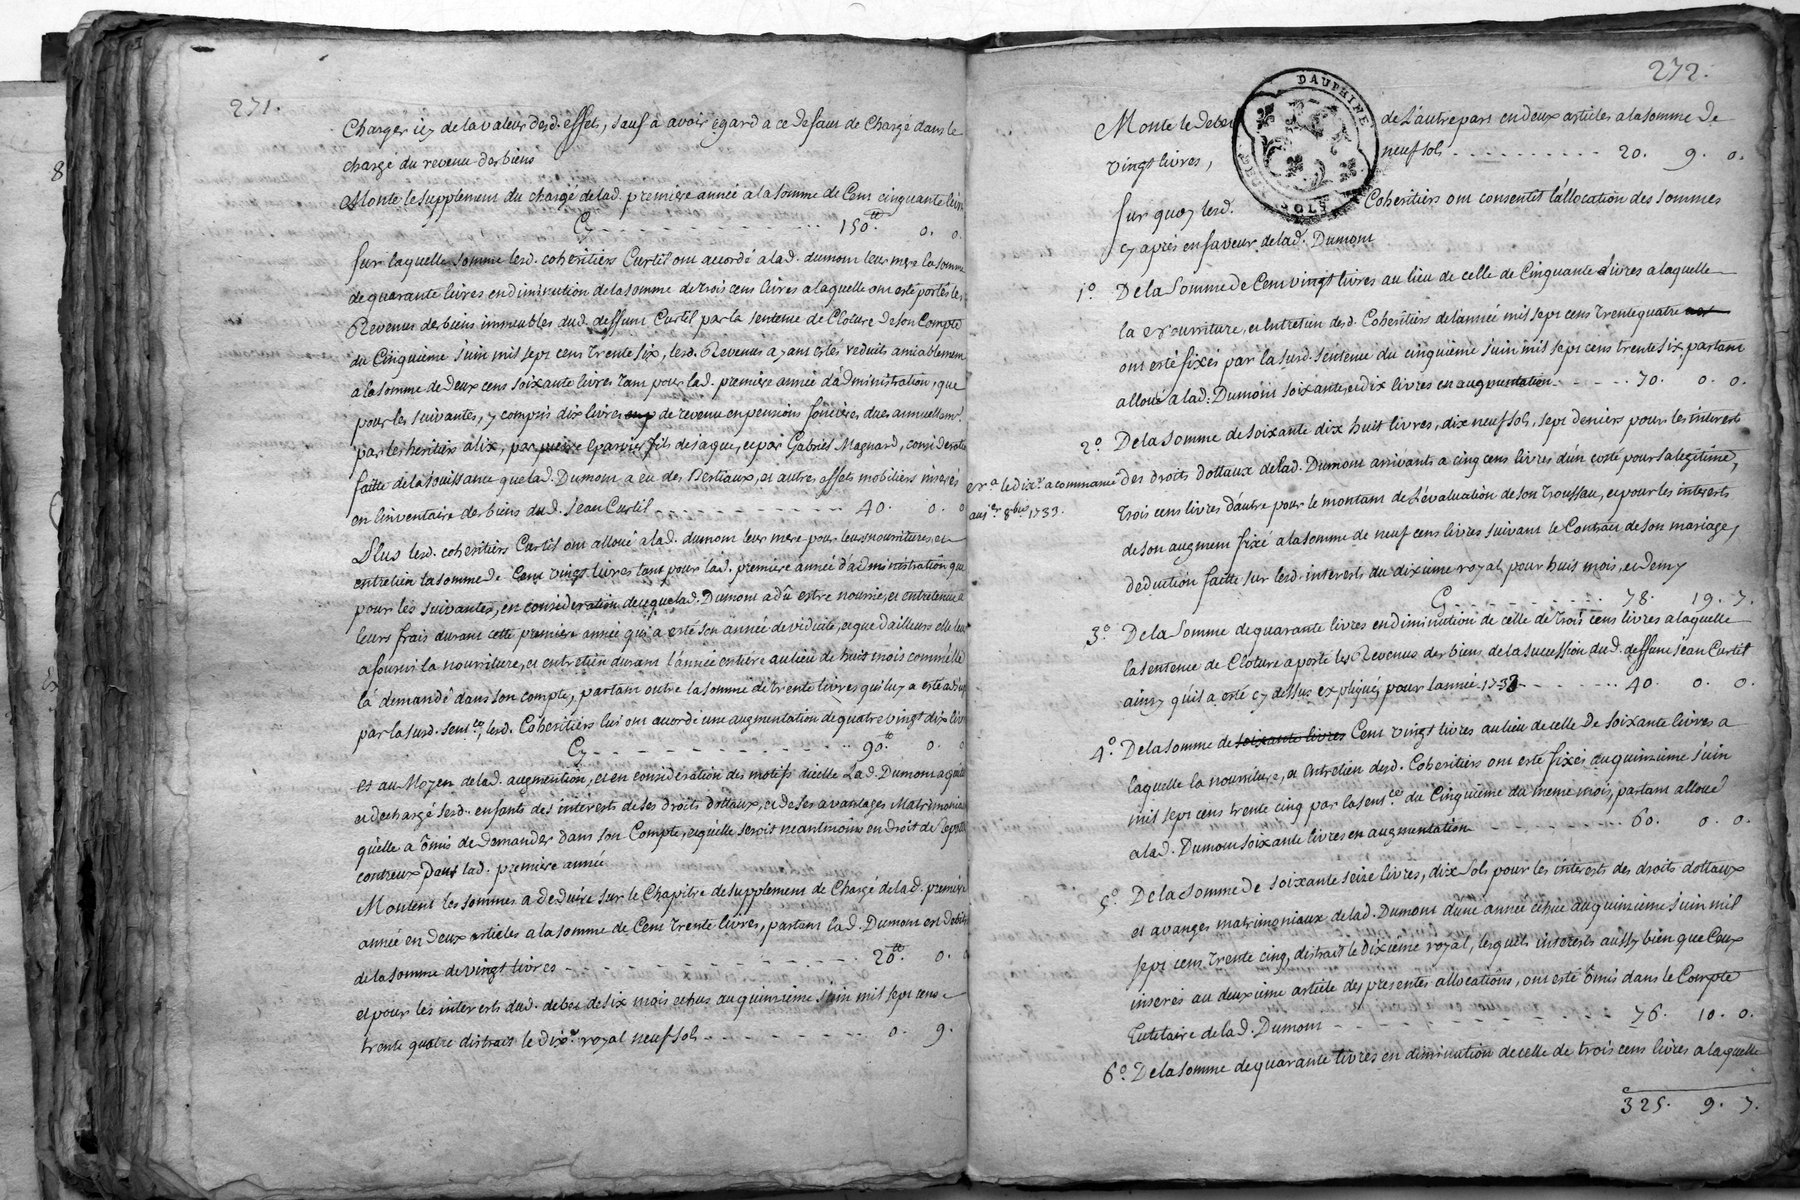 271.
Charger icy de la valeur desd. effets, sauf a avoir egard a ce defaut de Chargé dans le
chargé du revenu des biens
Monte le supplement du chargé de lad. premiere année a la somme de Cent cinquante livres
Cy 150.tt 0. 0.
Sur laquelle somme lesd. coheritiers Curtil ont accordé a lad. dumont leur mere la somme
de quarante livres en diminution de la somme de trois cens livres a laquelle ont esté portés les
Revenus des biens immeubles dud. deffunt Curtil par la sentence de Cloture de son Compte
du Cinquième Juin mil sept cens trente six, lesd. Revenus ayant estés reduits amiablement
a la somme de deux cens soixante livres tant pour lad. premiere année d'administration, que
pour les suivantes, y compris dix livres de revenu en pensions foncieres, dues annuellemt.
par les heritiers alix, par pierre Eparvier fils de Jaque, et par Gabriel Magnard, consideration
faitte de la Jouissance que lad. Dumont a eu des Bestiaux, et autres effets mobiliers inserés
en l'inventaire des biens dud. Jean Curtil 40. 0. 0
Plus lesd. coheritiers Curtil ont alloué a lad. dumont leur mere pour leurs nourritures et
entretien la somme de Cent vingt livres tant pour lad. premiere année d'administration que
pour les suivantes, en consideration de ce que lad. Dumont a dû estre nourrie, et entretenue a
leurs frais durant cette premiere année qui a esté son année de viduité, et que d'ailleurs elle leur
a fourni la nourriture, et entretien durant l'année entiere au lieu de huit mois comme elle
la demandé dans son compte, partant outre la somme de trente livres qui luy a esté adjugé
par la susd. sentce, lesd. Coheritiers lui ont accordé une augmentation de quatre vingt dix livres
Cy 90.tt 0. 0
et au Moyen de lad. augmention, et en consideration des motifs d'icelle Lad. Dumont a quitté
et dechargé sesd. enfants des intérests de ses droits dottaux, et de ses avantages Matrimoniaux
qu'elle a omis de demander dans son Compte, et qu'elle seroit neantmoins en droit de repeter
contr'eux pour lad. premiere année
Montent les sommes a deduire sur le Chapitre de supplement de Chargé de lad. premiere
année en deux articles a la somme de Cent trente livres, partant lad. Dumont est debitrice
de la somme de vingt livres 20.tt 0. 0
et pour les interests dud. debet de six mois echus au quinzieme Juin mil sept cens
trente quatre distrait le dixe. royal neuf sols 0. 9.
272.
DAUPHINE
SOLS
Monte le debet de L'autre part en deux articles a la somme de
vingt livres, neuf sols 20. 9. 0.
Sur quoy lesd. Coheritiers ont consentit l'allocation des sommes
cy apres en faveur de lad. Dumont
1.o De la Somme de Cent vingt livres au lieu de celle de Cinquante Livres a laquelle
la Nourriture, et Entretien desd. Coheritiers de l'année mil sept cens Trente quatre
ont esté fixés par la susd. sentence du cinquieme Juin mil sept cens trente six, partant
alloué a lad. Dumont soixante, et dix livres en augmentation 70. 0. 0.
2.o De la somme de soixante dix huit livres, dix neuf sols, sept deniers pour les interests
Na. le dixe. a commancé
au 1er 8bre 1733.
des droits dottaux de lad. Dumont arrivants a cinq cens livres d'un costé pour sa legitime,
trois cens livres d'autre pour le montant de L'évaluation de son Troussau, et pour les interests
de son augment fixé a la somme de neuf cens livres suivant le Contrat de son mariage,
deduction faitte sur lesd. interests du dixieme royal pour huit mois, et demy
Cy 78. 19. 7.
3.o De la Somme de quarante livres en diminution de celle de Trois cens livres a laquelle
la sentence de Cloture a porté les Revenus des biens de la succession dud. deffunt Jean Curtil
ainsy qu'il a esté cy dessus expliqué, pour l'année 1733 40. 0. 0.
4.o De la somme de soixante livres Cent vingt livres au lieu de celle de soixante livres a
laquelle la nourriture, et Entretien desd. Coheritiers ont esté fixés au quinzieme Juin
mil sept cens trente cinq par la sentce. du Cinquieme du meme mois, partant alloué
a lad. Dumont soixante livres en augmentation 60. 0. 0.
5.o De la somme de soixante seize livres, dix sols pour les interests des droits dottaux
et avanges matrimoniaux de lad. Dumont d'une année echue au quinzieme Juin mil
sept cens trente cinq, distrait le dixieme royal, lesquels interests aussy bien que Ceux
inserés au deuxieme article des presentes allocations, ont esté omis dans le Compte
Tutelaire de lad. Dumont 76. 10. 0.
6.o De la somme de quarante livres en diminution de celle de trois cens livres a laquelle
325. 9. 7.